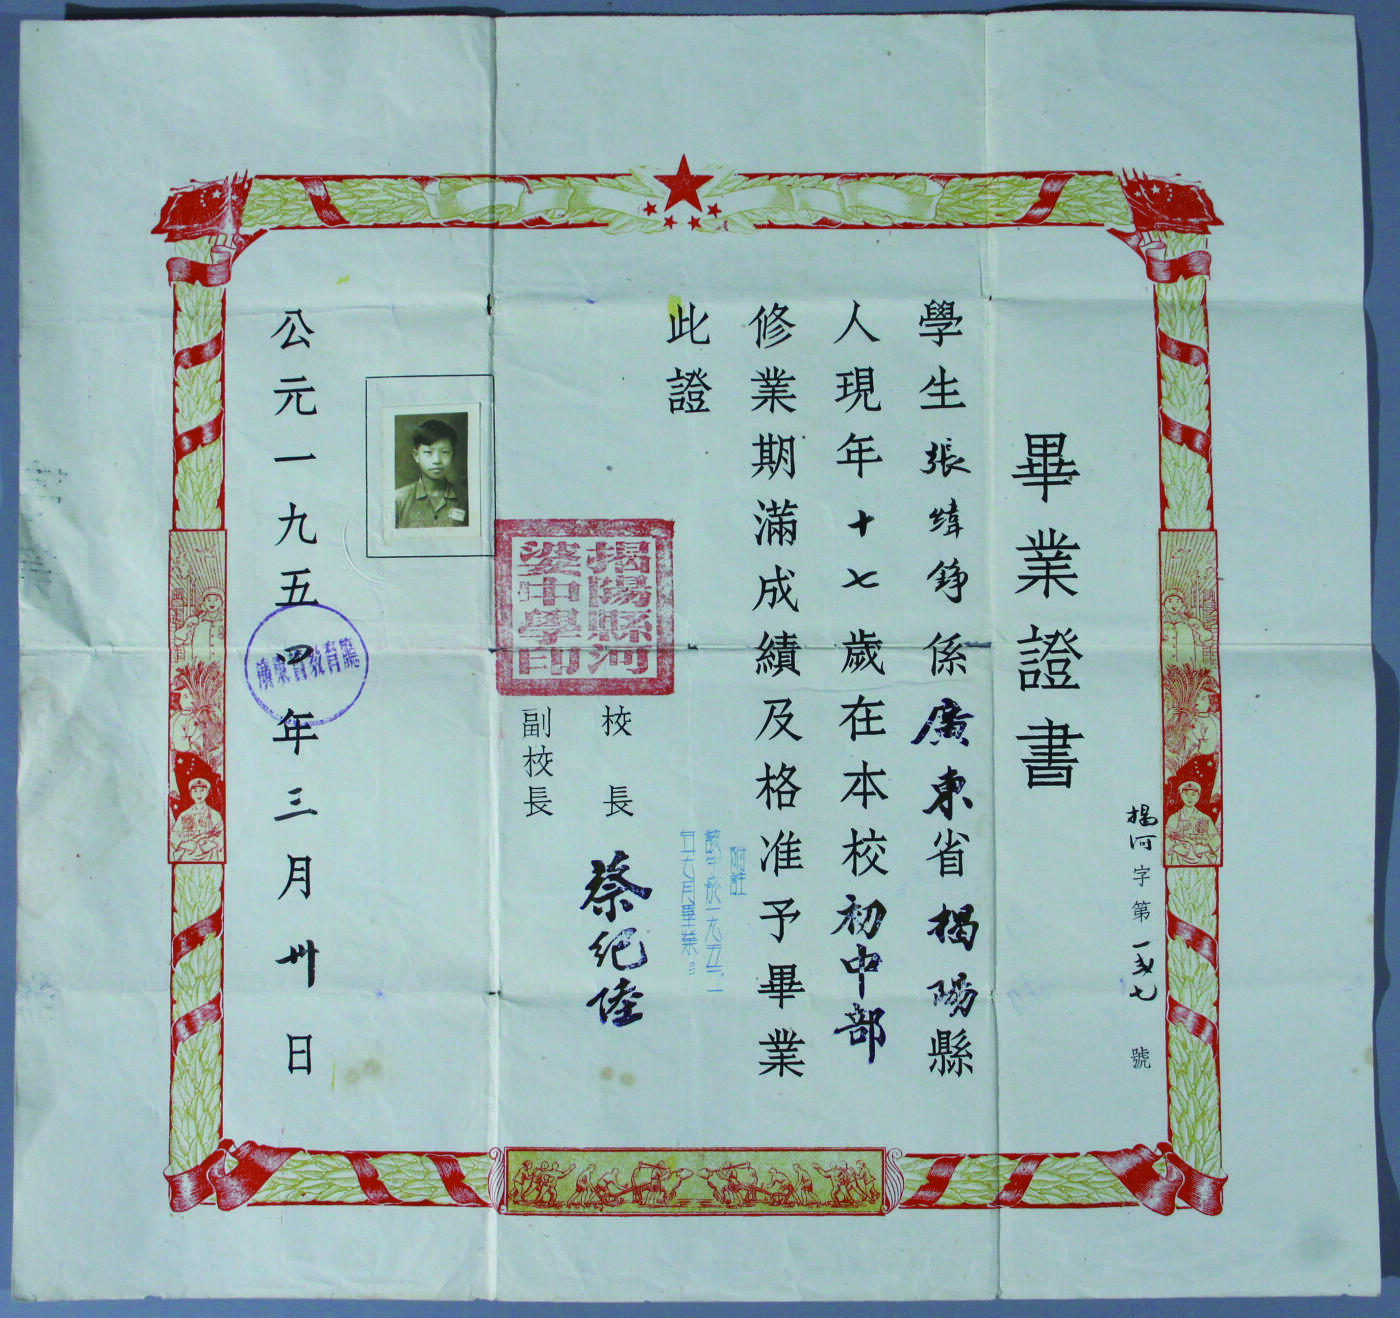 畢業證書
揭河字第一弍七號
學生張緯錚係廣東省揭陽縣
人現年十七歲在本校初中部
修業期滿成績及格准予畢業
此證
附註
該生於一九五三
年七月畢業
校長 蔡紀陸
副校長
揭陽縣河
婆中學印
公元一九五四年三月卅日
廣東省教育廳